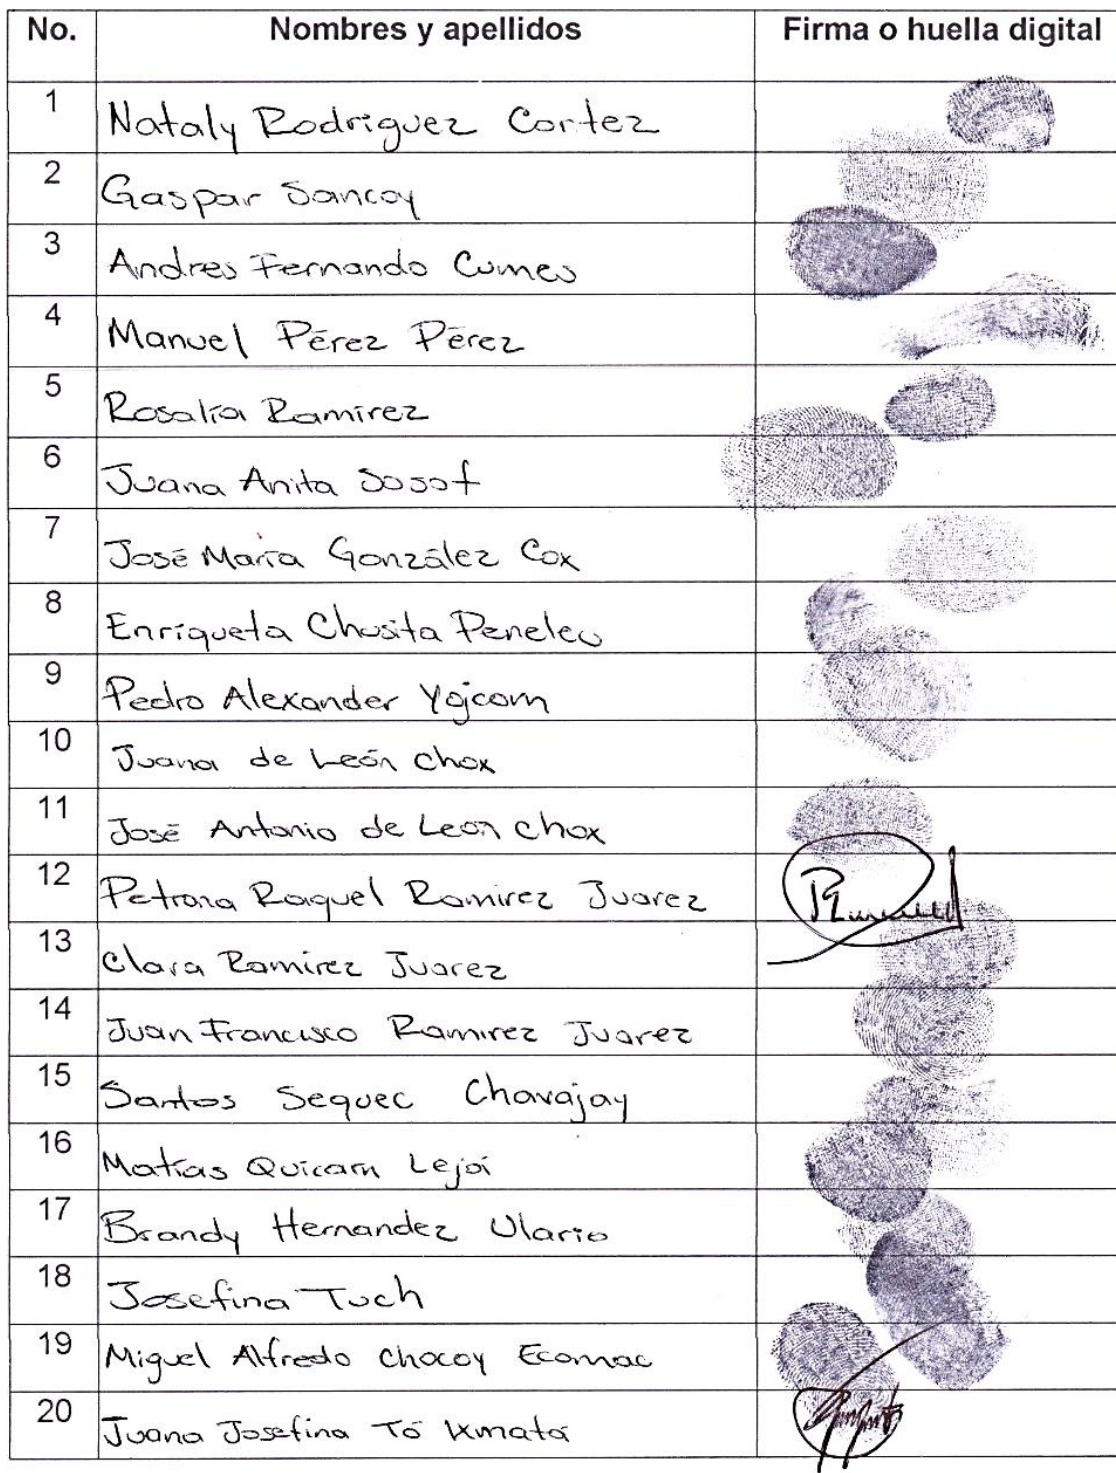 No. Nombres y apellidos Firma o huella digital
1 Nataly Rodriguez Cortez
2 Gaspar Sancoy
3 Andres Fernando Cumes
4 Manuel Pérez Pérez
5 Rosalía Ramirez
6 Juana Anita Sosof
7 José María González Cox
8 Enriqueta Chusita Peneleu
9 Pedro Alexander Yojcom
10 Juana de León Chox
11 José Antonio de León Chox
12 Petrona Raquel Ramirez Juarez
13 Clara Ramirez Juarez
14 Juan Francisco Ramirez Juarez
15 Santos Sequec Chavajay
16 Matías Quicam Lejoí
17 Brandy Hernandez Ulario
18 Josefina Tuch
19 Miguel Alfredo Chocoy Ecomac
20 Juana Josefina Tó Ixmatá